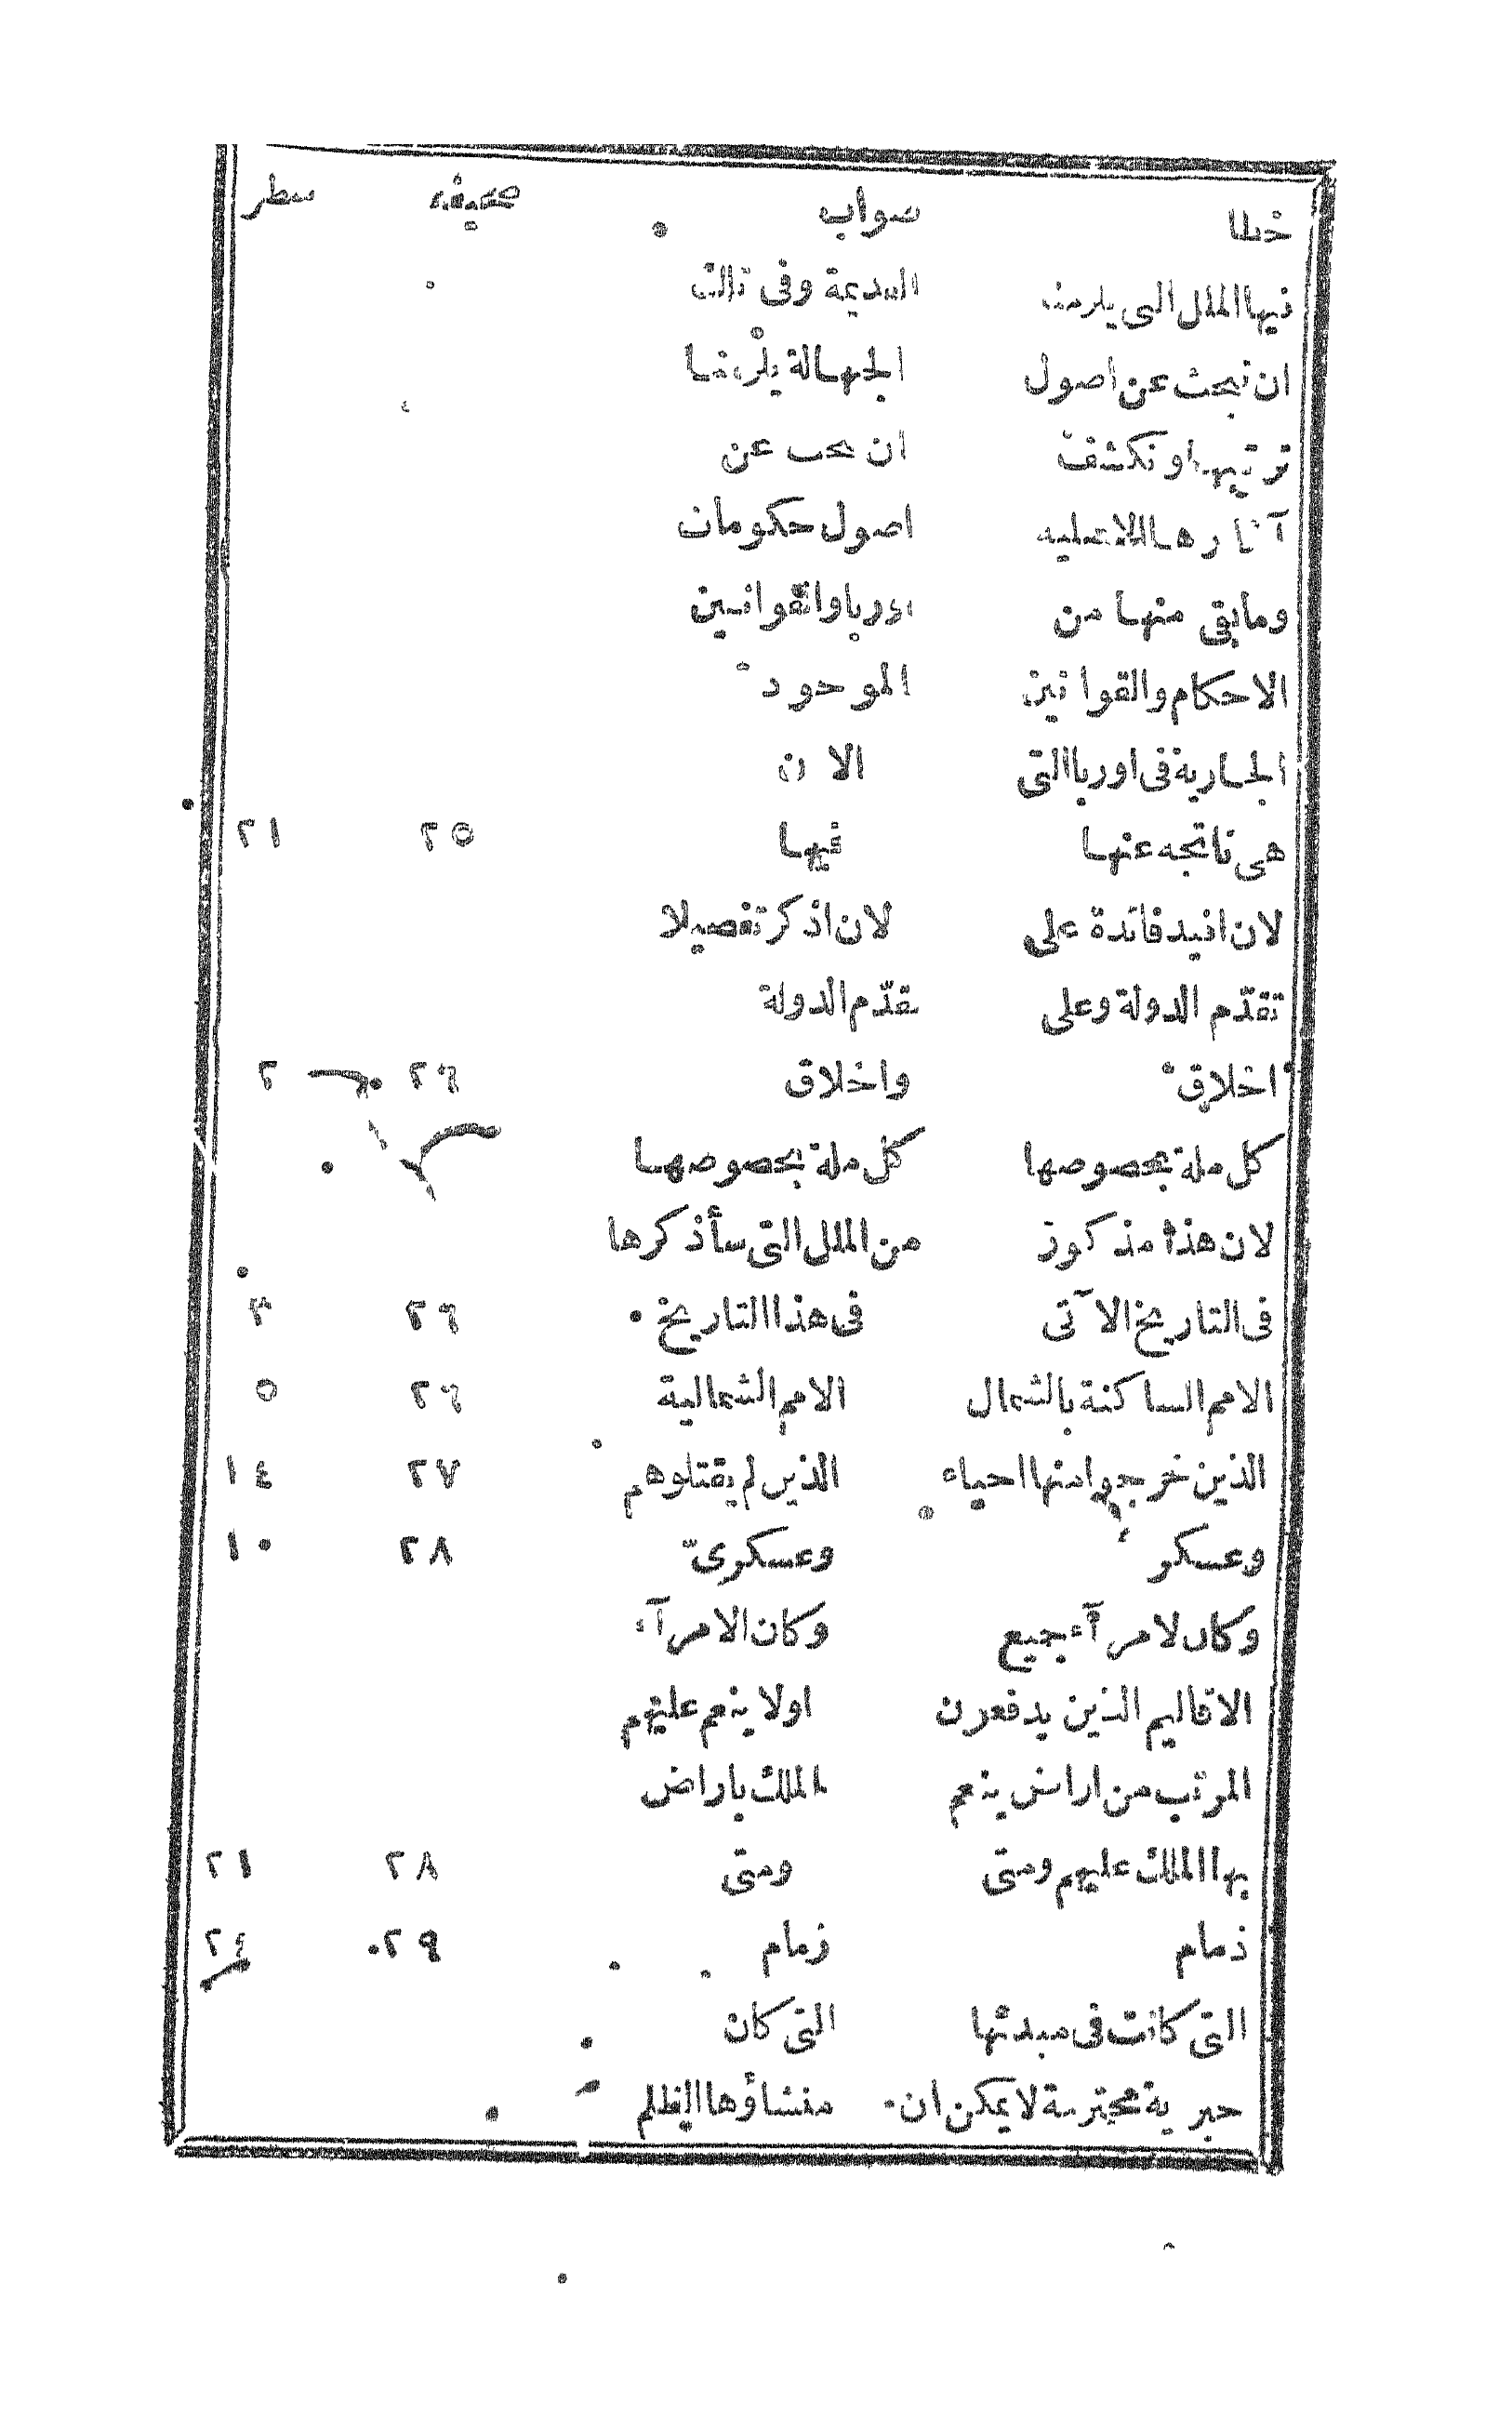 خطا صواب صحيفه سطر
فيها الملل التى يلزمنا القديمة وفى تلك
ان نبحث عن اصول الجهالة يلزمنا
ترتيبها ونكشف ان نبحث عن
آثارها الاصليه اصول حكومات
وما بقى منها من اوربا والقوانين
الاحكام والقوانين الموجودة
الجارية فى اوربا التى الان
هى ناتجه عنها فيها ٢٥ ٢١
لان افيد فائدة على لان اذكر تفصيلا
تقدّم الدولة وعلى تقدّم الدولة
اخلاق واخلاق ٢٦ ٢
كل ملة بخصوصها كل ملة بخصوصها
لان هذا مذكور من الملل التى سأذكرها
فى التاريخ الآتى فى هذا التاريخ ٢٦ ٣
الامم الساكنة بالشمال الامم الشمالية ٢٦ ٥
الذين خرجوا منها احياء الذين لم يقتلوهم ٢٧ ١٤
وعسكر وعسكرىّ ٢٨ ١٠
وكان لامرآء جميع وكان الامرآء
الاقاليم الذين يدفعون اولا ينعم عليهم
المرتب من اراض ينعم الملك باراض
بها الملك عليهم ومتى ومتى ٢٨ ٢١
ذمام زمام ٢٩ ٢٤
التى كانت فى مبدئها التى كان
جبرية محترسة لا يمكن ان منشاؤها الظلم